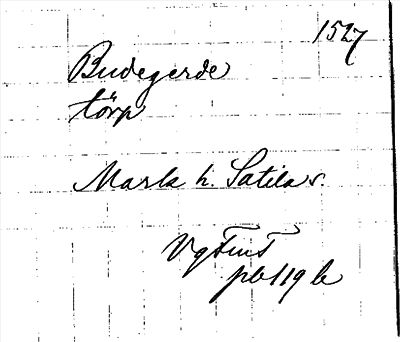 1527
Budegerde
törp
Marks h. Sätila s.
Vg Fms
pb 119 b